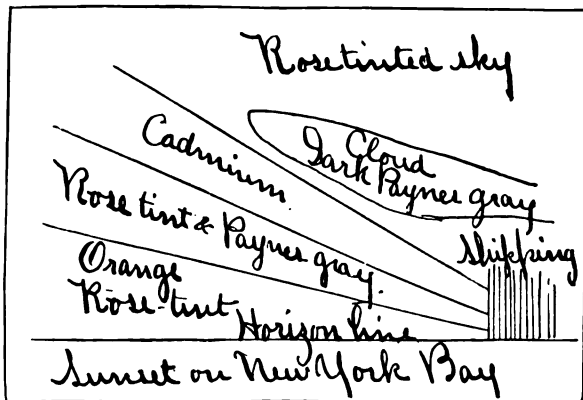 Rose tinted sky
Cadmium
Cloud
Dark Paynes gray
Rose tint & Paynes gray.
Shipping
Orange
Rose-tint
Horizon line
Sunset on New York Bay